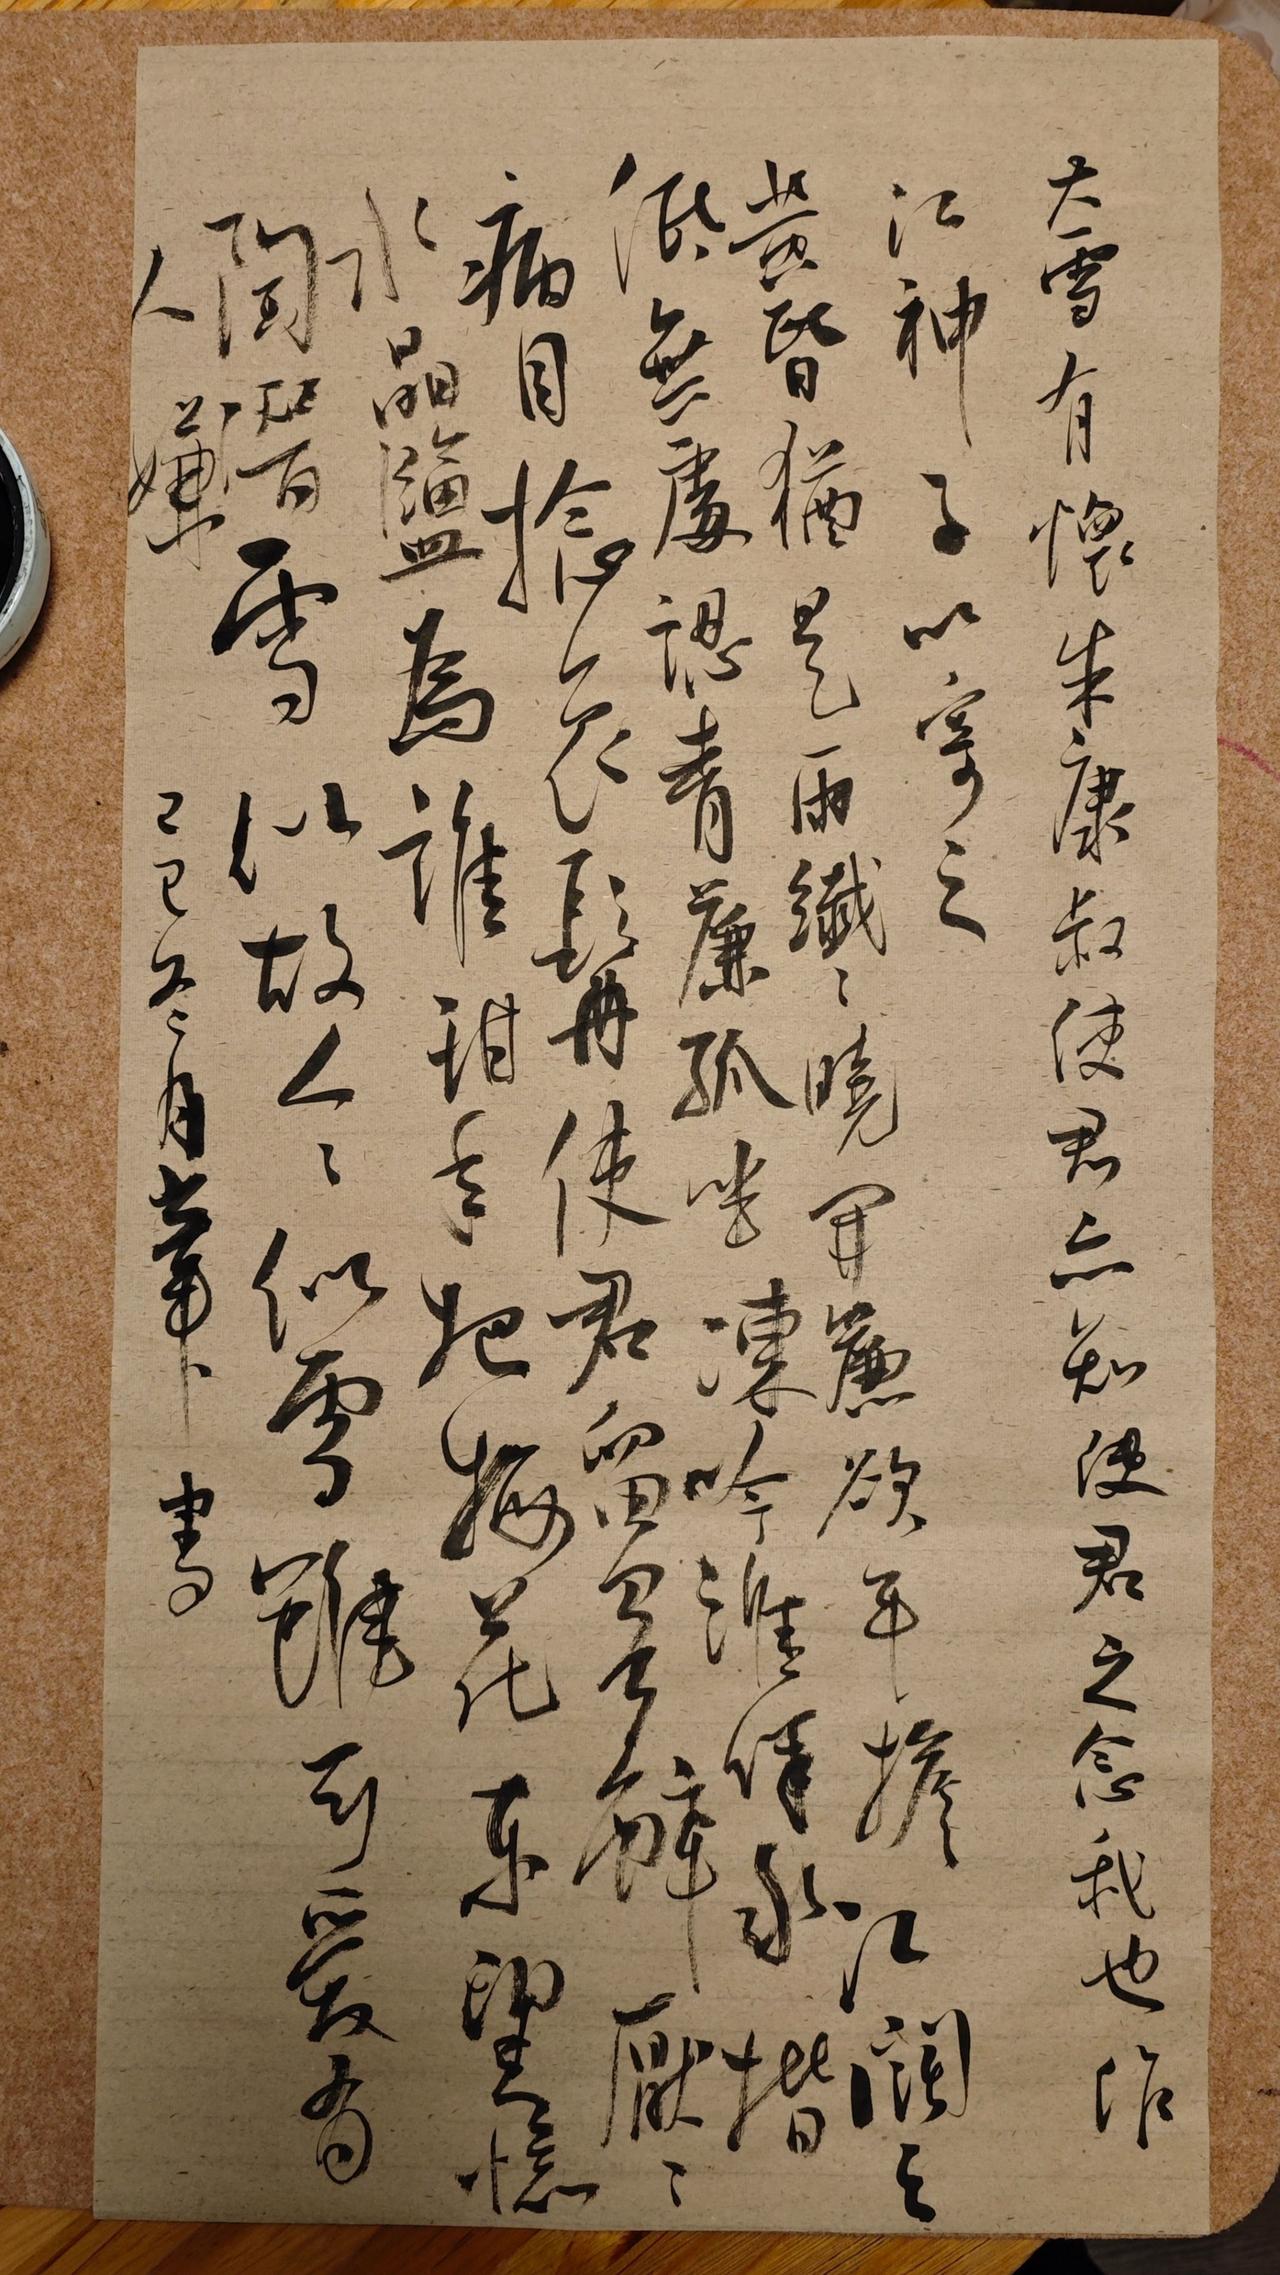 大雪有懷朱康叔使君亦知使君之念我也作
江神子以寄之
黃昏猶是雨纖〻曉開簾欲平檐江闊天
低無處認青簾孤坐凍吟誰伴我揩
病目捻衰髯使君留客醉厭〻
水晶鹽為誰甜手把梅花東望憶
陶潛雪似故人〻似雪雖可愛有
人嫌
乙巳冬月 書